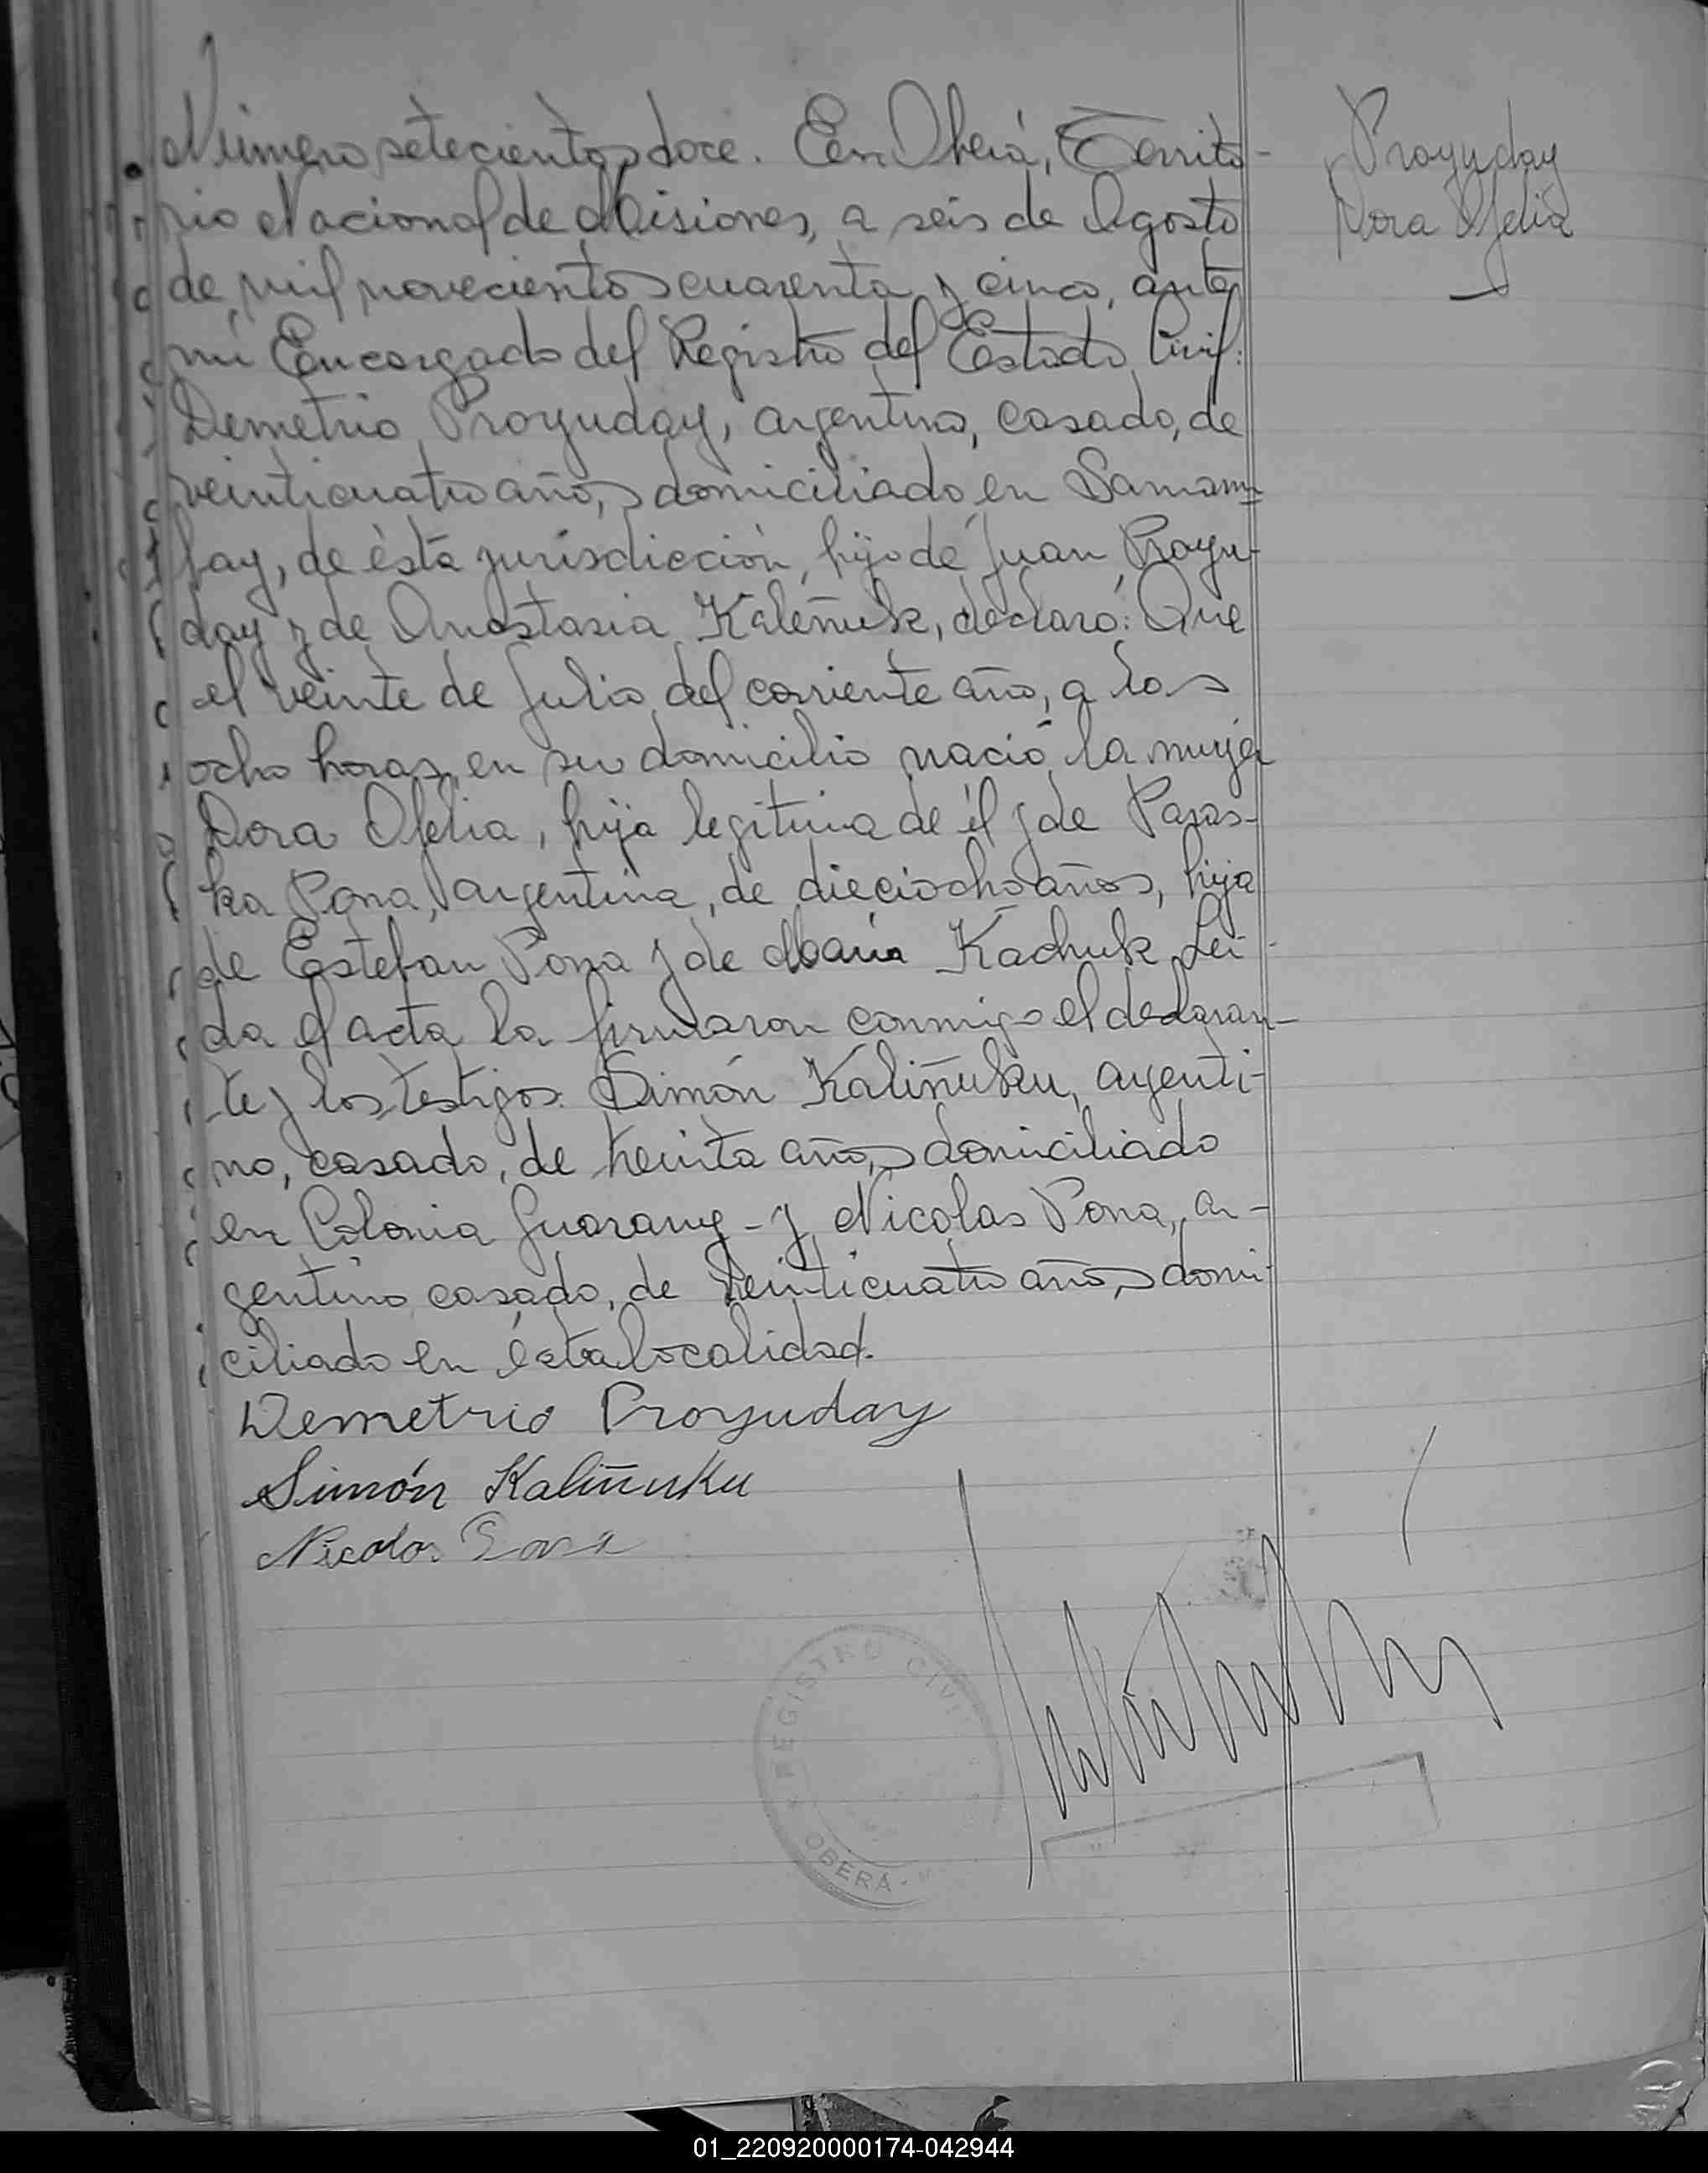 Número setecientos doce. En Oberá, Territo-
rio Nacional de Misiones, a seis de Agosto
de mil novecientos cuarenta y cinco, ante
mi Encargado del Registro del Estado Civil:
Demetrio Proyuday, argentino, casado, de
veinticuatro años, domiciliado en Samam-
bay, de ésta jurisdicción, hijo de Juan Proyu-
day y de Anastasia Kaleñuk, declaró: Que
el veinte de Julio del corriente año, a las
ocho horas, en su domicilio nació la mujer
Dora Ofelia, hija legítima de él y de Paras-
ka Pona, argentina, de dieciocho años, hija
de Esteban Pona y de María Kachuk Lei-
da el acta la firmaron conmigo el declaran-
te y los testigos: Simón Kaliñuku, argenti-
no, casado, de treinta años, domiciliado
en Colonia Guarany - y Nicolas Pona, ar-
gentino casado, de veinticuatro años, domi-
ciliado en ésta localidad.
Demetrio Proyuday
Simón Kaliñuku
Nicolas Pona
Proyuday
Dora Ofelia
REGISTRO CIVIL
OBERÁ
01_220920000174-042944